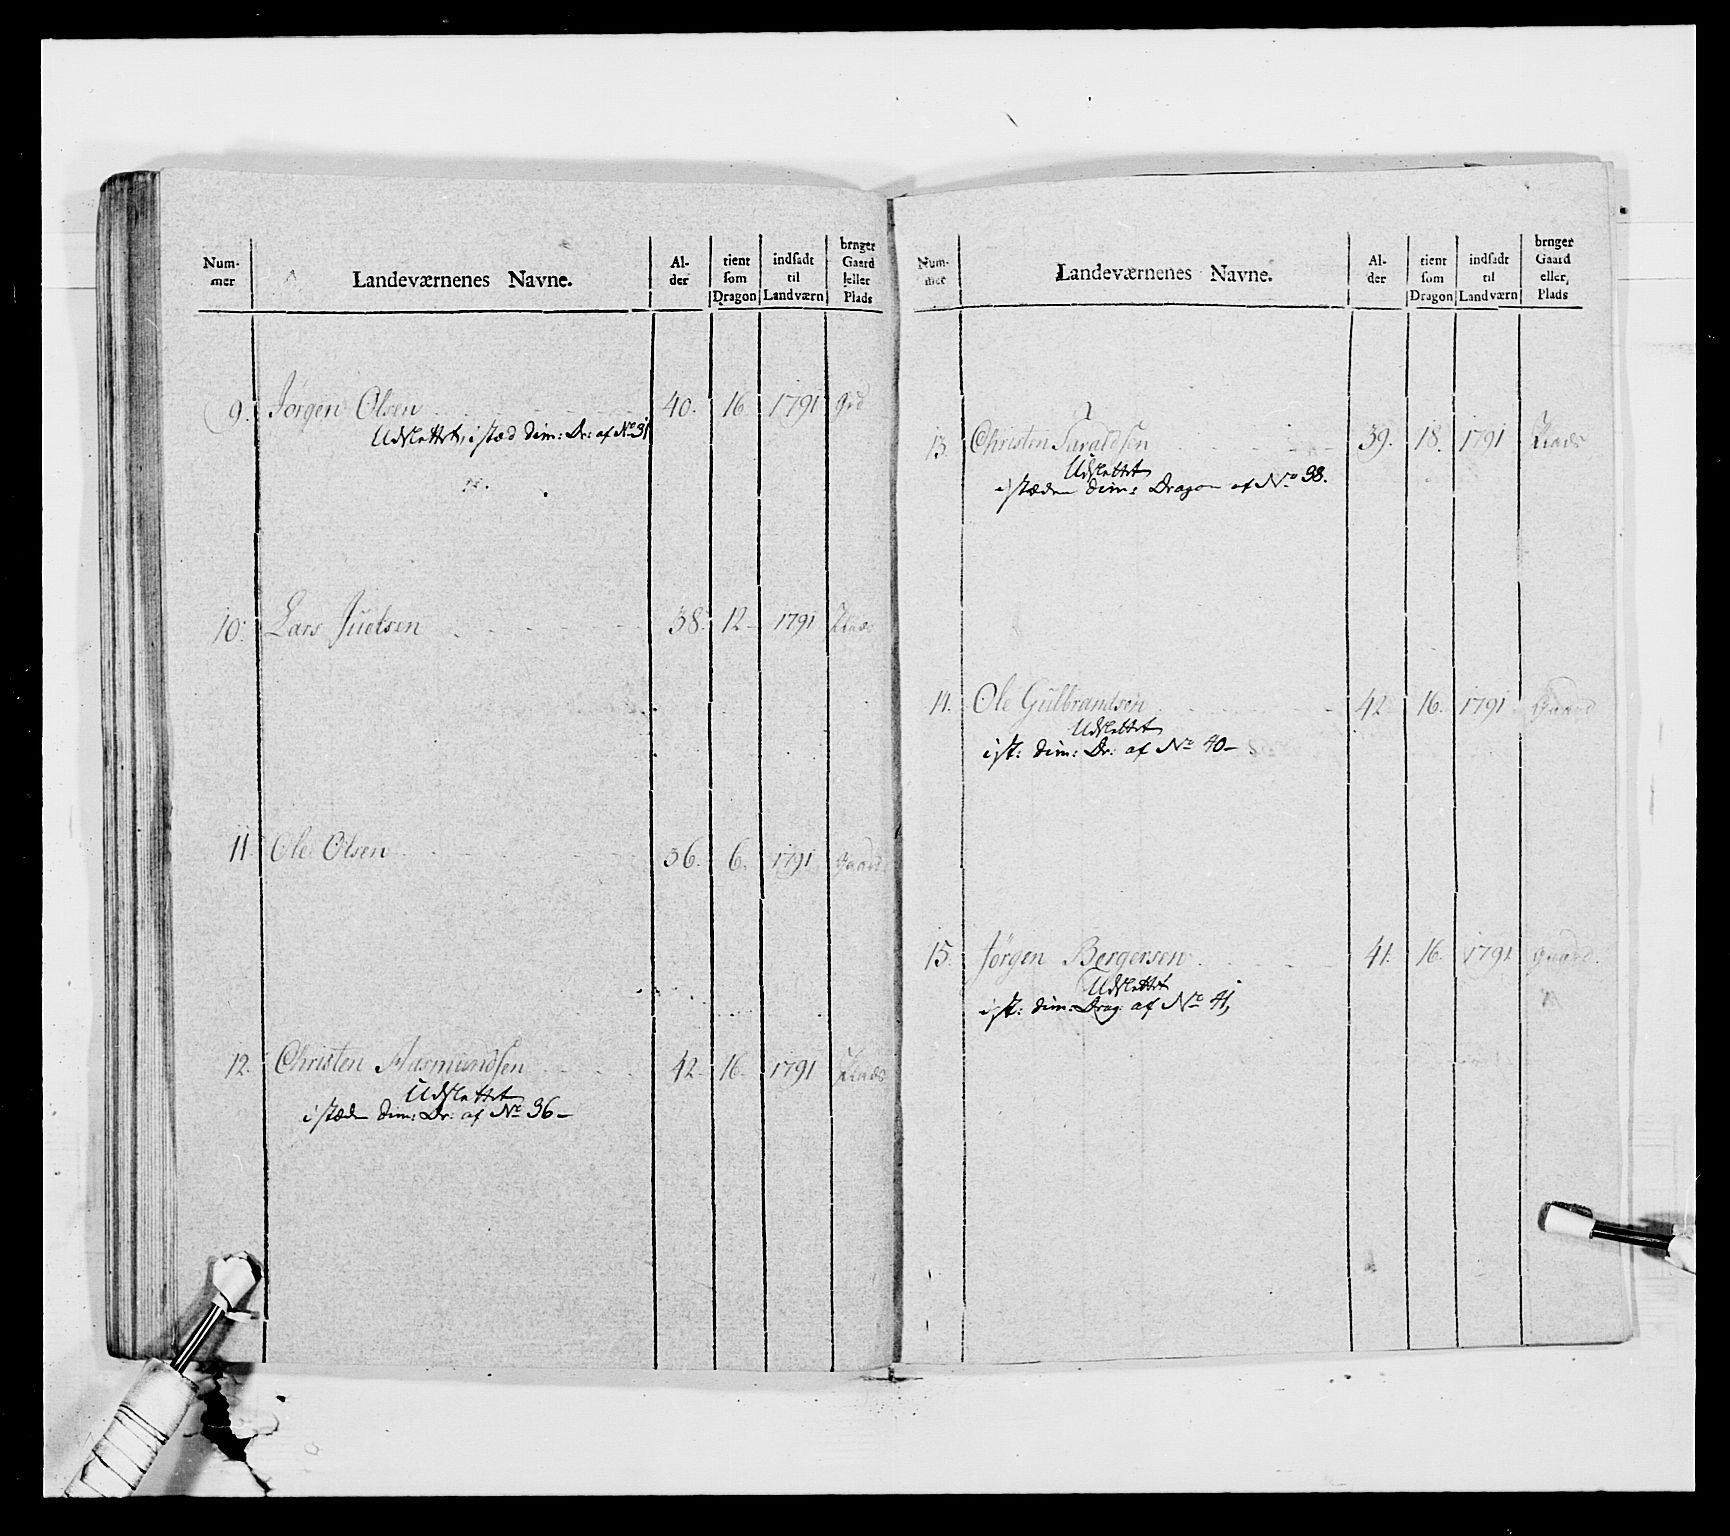 Num-
mer
Landeværnenes Navne.
Al-
der
tient
som
Dragon
indsadt
til
Landværn
bruger
Gaard
eller
Plads
9. Jørgen Olsen 40. 16. 1791 Grd
Udslettet, i stæd dim: Dr: af No 31
10. Lars Juelsen 38. 12 - 1791 Plads
11 Ole Olsen 36. 6. 1791 Gaard
12. Christen Aasmundsen 42 16. 1791 Plads
Udslettet
i stæden dim: Dr: af No 36 -
Num-
mer
Landeværnenes Navne.
Al-
der
tient
som
Dragon
indsadt
til
Landværn
bruger
Gaard
eller
Plads
13. Christen Taraldsen 39. 18. 1791 Plads
Udslettet
i stæden dim: Dragon af No 38.
14. Ole Gulbrandsen 42 16. 1791 Gaard
Udslettet
i st: dim: Dr: af No 40 -
15. Jørgen Bergersen 41. 16. 1791 Gaard.
Udslettet
i st: dim: Drag: af No 41,